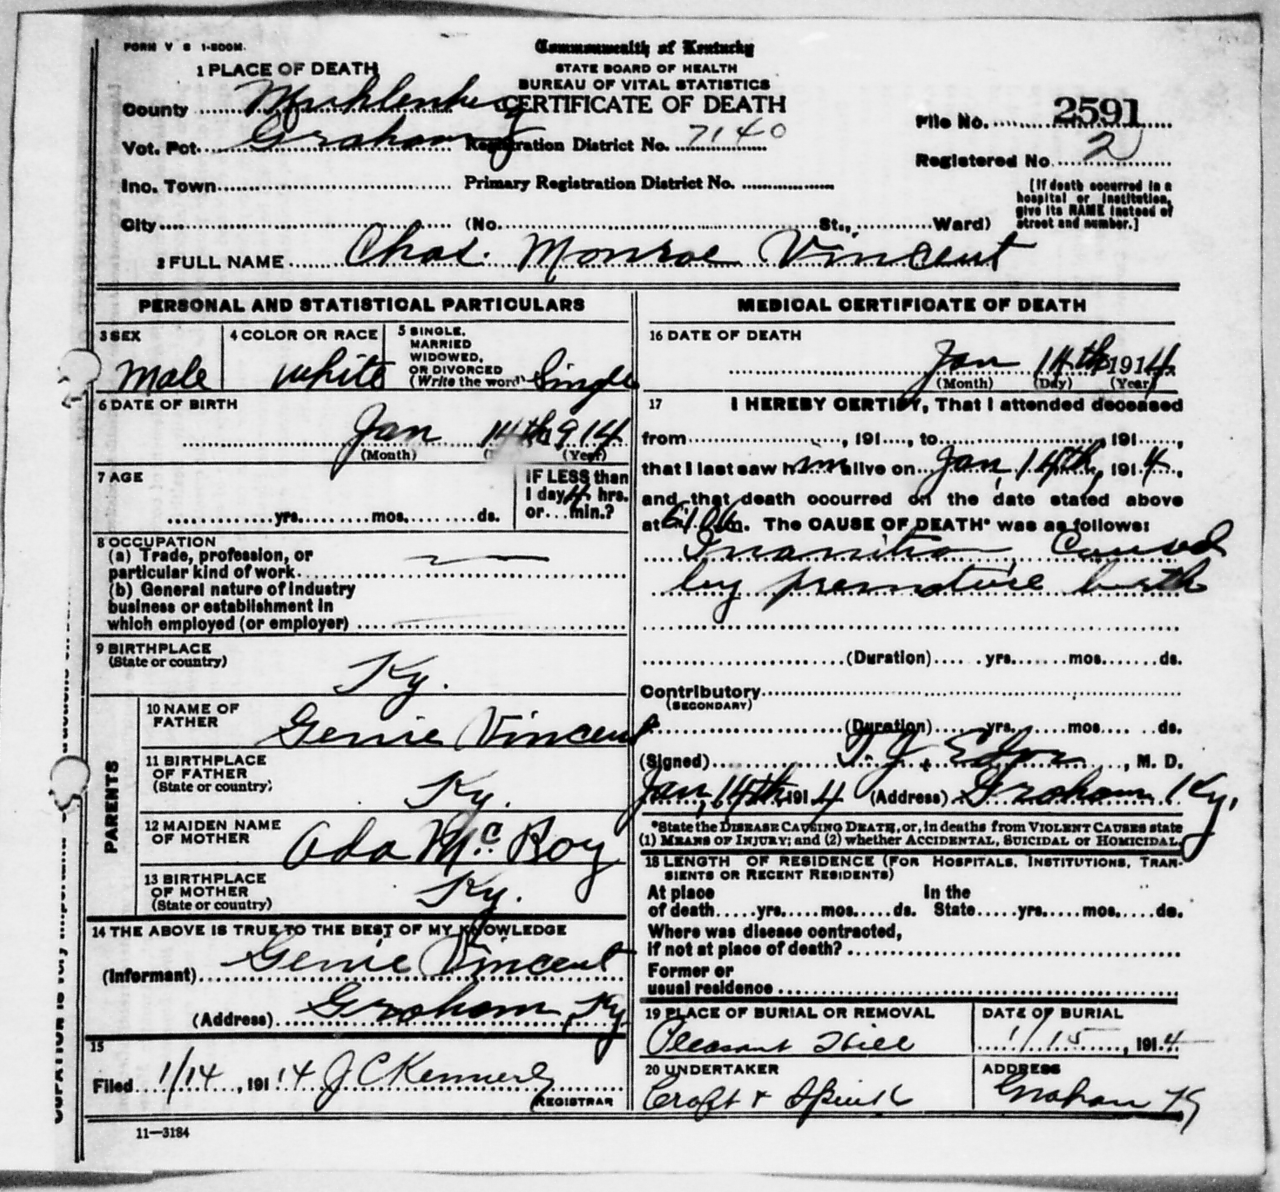 FORM V S 1-500M.
Commonwealth of Kentucky
STATE BOARD OF HEALTH
BUREAU OF VITAL STATISTICS
CERTIFICATE OF DEATH
1 PLACE OF DEATH
County Muhlenberg
Vot. Pct. Graham
Registration District No. 7140
File No. 2591
Registered No. 2
Inc. Town
Primary Registration District No.
[If death occurred in a hospital or institution, give its NAME instead of street and number.]
City (No. St., Ward)
2 FULL NAME Chas. Monroe Vincent
PERSONAL AND STATISTICAL PARTICULARS
3 SEX
male
4 COLOR OR RACE
white
5 SINGLE, MARRIED WIDOWED, OR DIVORCED (Write the word)
Single
6 DATE OF BIRTH
Jan 14th 1914
(Month) (Year)
7 AGE
yrs. mos. ds.
IF LESS than
1 day 4 hrs.
or min.?
8 OCCUPATION
(a) Trade, profession, or
particular kind of work
(b) General nature of Industry
business or establishment in
which employed (or employer)
9 BIRTHPLACE
(State or country)
Ky.
PARENTS
10 NAME OF FATHER
Genie Vincent
11 BIRTHPLACE OF FATHER (State or country)
Ky.
12 MAIDEN NAME OF MOTHER
Ada McRoy
13 BIRTHPLACE OF MOTHER (State or country)
Ky.
14 THE ABOVE IS TRUE TO THE BEST OF MY KNOWLEDGE
(Informant) Genie Vincent
(Address) Graham, Ky
15
Filed 1/14, 1914 J C Kennerly
REGISTRAR
11—3184
MEDICAL CERTIFICATE OF DEATH
16 DATE OF DEATH
Jan 14th 1914
(Month) (Day) (Year)
17 I HEREBY CERTIFY, That I attended deceased
from , 191 , to , 191 ,
that I last saw him alive on Jan, 14th, 1914,
and that death occurred on the date stated above
at m. The CAUSE OF DEATH* was as follows:
Inanition Caused
by premature birth
(Duration) yrs. mos. ds.
Contributory
(SECONDARY)
(Duration) yrs. mos. ds.
(Signed) T. J. , M. D.
Jan, 14th, 1914 (Address) Graham Ky,
*State the DISEASE CAUSING DEATH, or, in deaths from VIOLENT CAUSES state
(1) MEANS OF INJURY; and (2) whether ACCIDENTAL, SUICIDAL or HOMICIDAL
18 LENGTH OF RESIDENCE (FOR HOSPITALS, INSTITUTIONS, TRAN-
SIENTS OR RECENT RESIDENTS)
At place of death yrs. mos. ds. In the State yrs. mos. ds.
Where was disease contracted,
if not at place of death?
Former or
usual residence
19 PLACE OF BURIAL OR REMOVAL
Pleasant Hill
DATE OF BURIAL
1/15, 1914
20 UNDERTAKER
Croft &
ADDRESS
Graham Ky